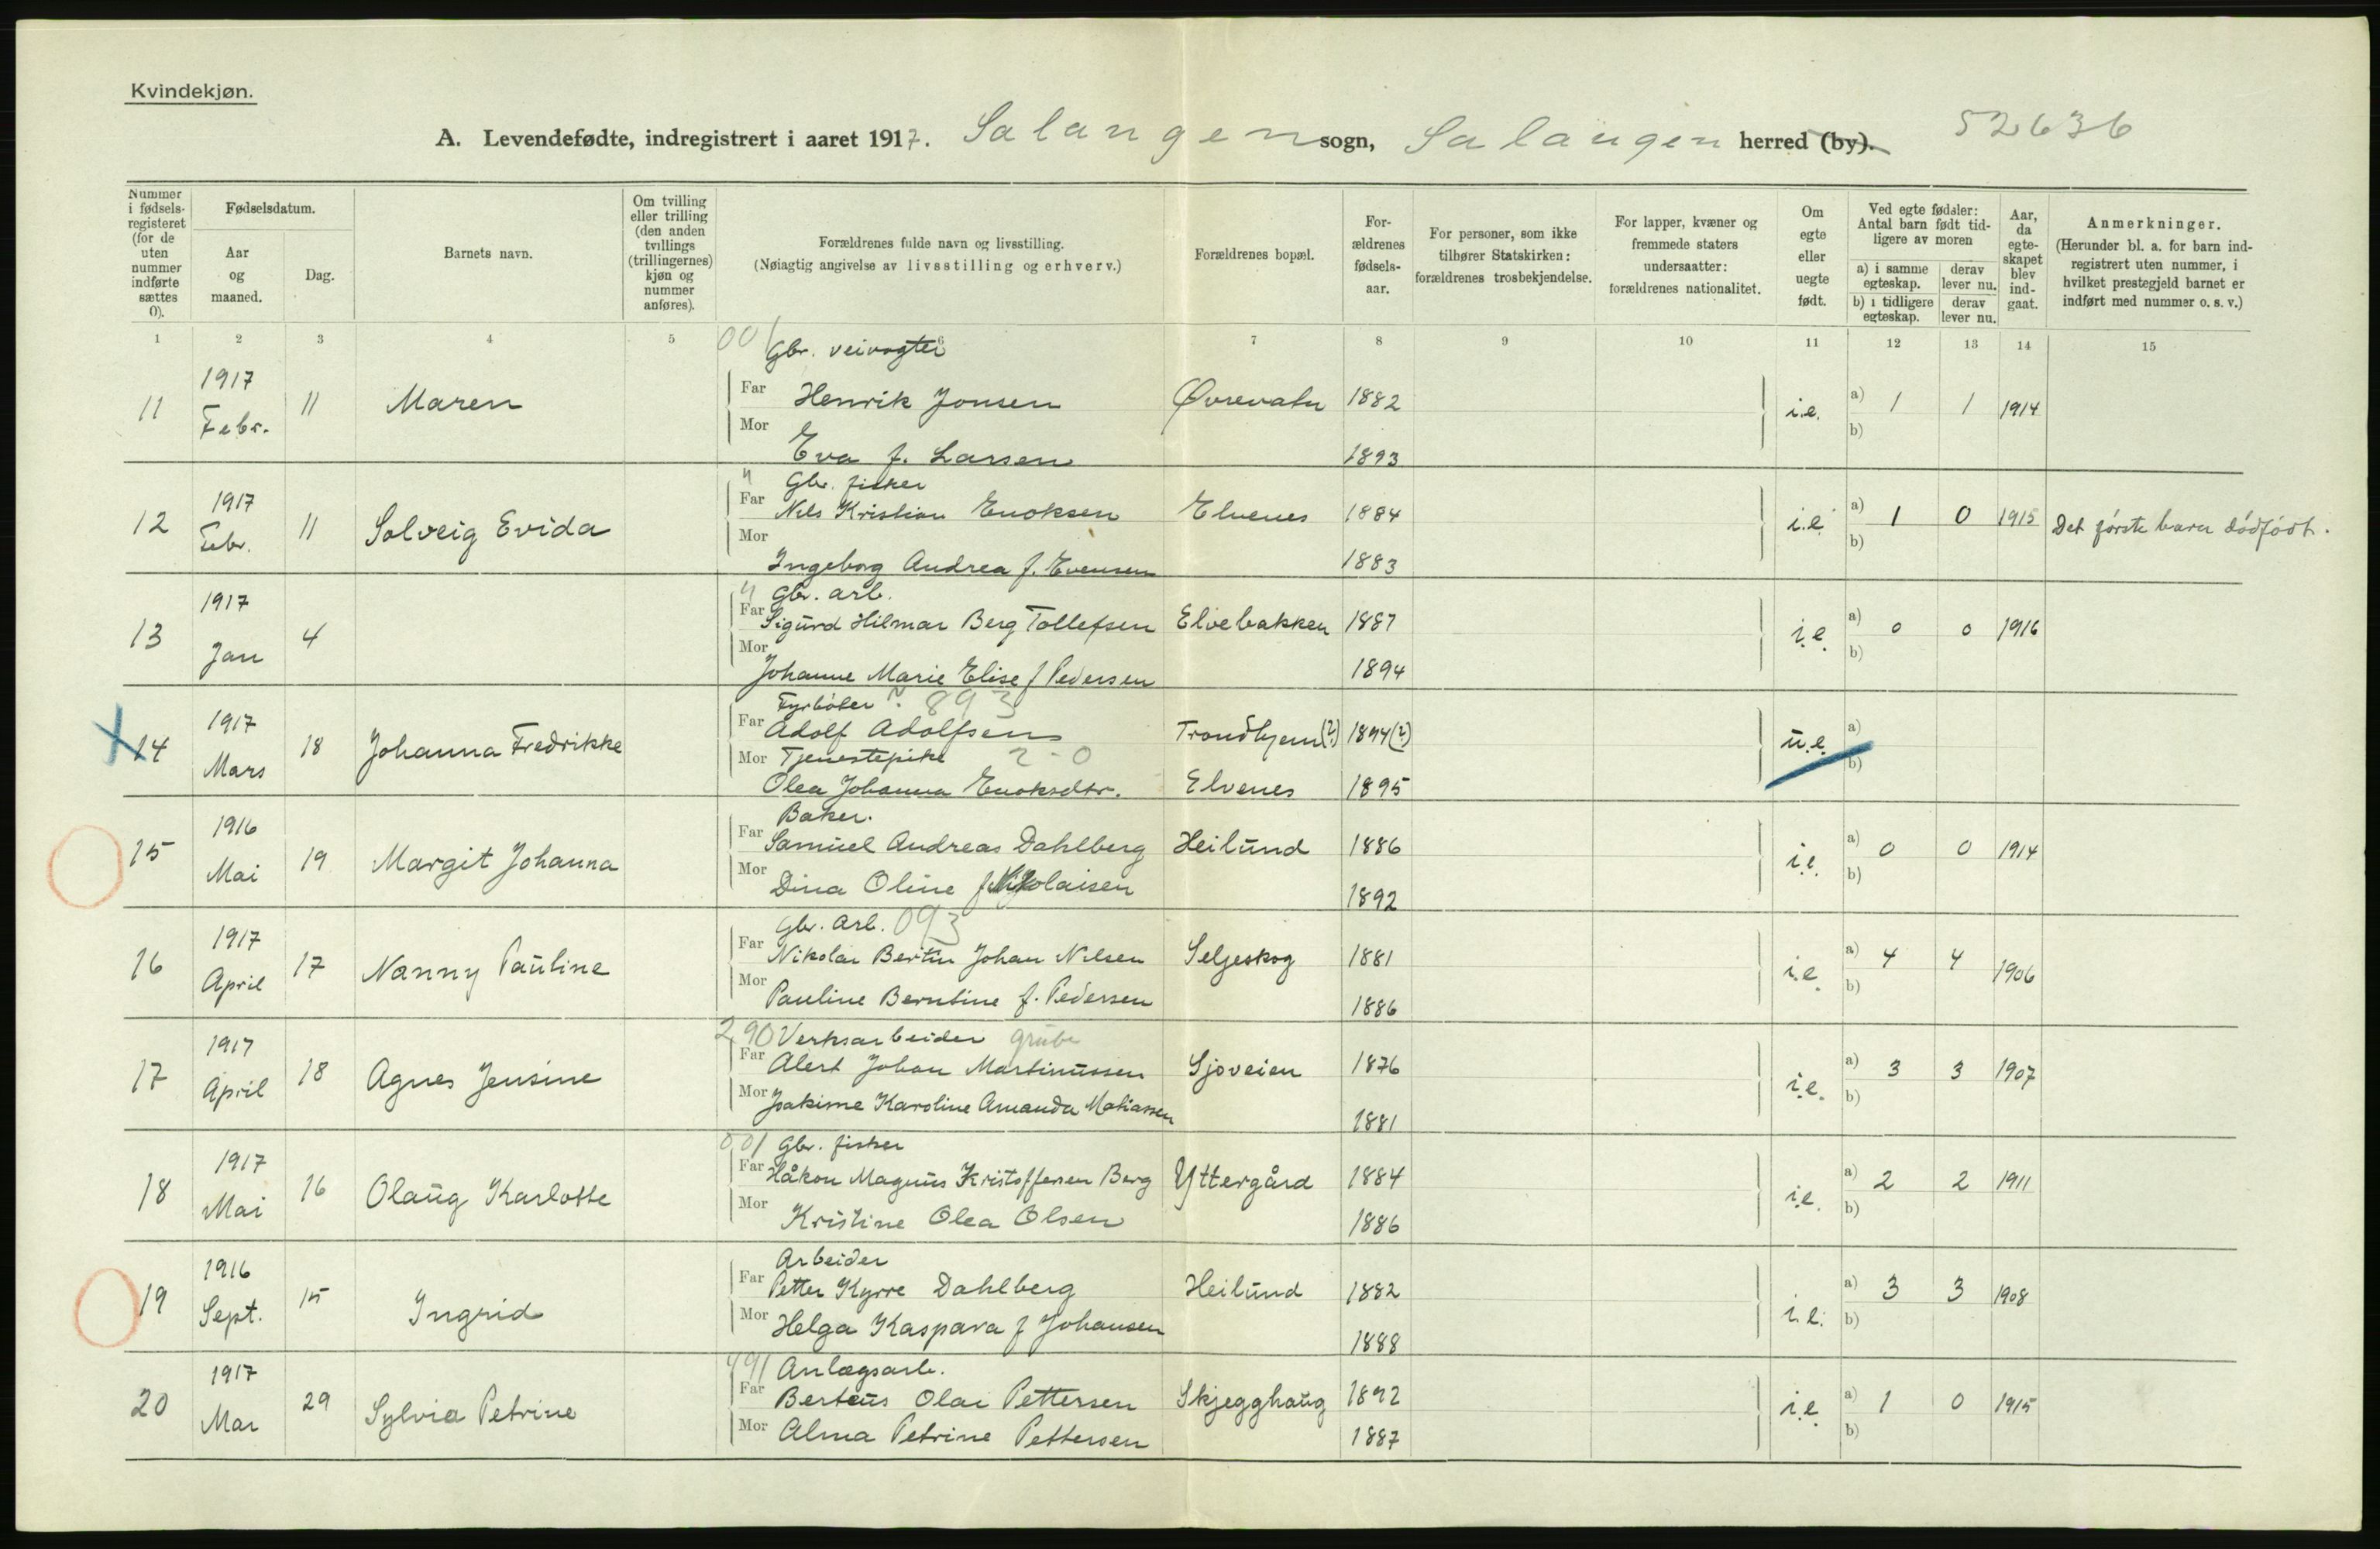 Kvindekjøn.
A. Levendefødte, indregistrert i aaret 1917. Salangen sogn, Salangen herred (by). 52636
Nummer i fødsels-registeret (for de uten nummer indførte sættes 0).
Fødselsdatum.
Aar og maaned.
Dag.
Barnets navn.
Om tvilling eller trilling (den anden tvillings (trillingernes) kjøn og nummer anføres).
Forældrenes fulde navn og livsstilling.
(Nøiagtig angivelse av livsstilling og erhverv.)
Forældrenes bopæl.
For-ældrenes fødsels-aar.
For personer, som ikke tilhører Statskirken: forældrenes trosbekjendelse.
For lapper, kvæner og fremmede staters undersaatter: forældrenes nationalitet.
Om egte eller uegte født.
Ved egte fødsler: Antal barn født tid-ligere av moren
a) i samme egteskap. derav lever nu.
b) i tidligere egteskap. derav lever nu.
Aar, da egte-skapet blev ind-gaat.
Anmerkninger.
(Herunder bl. a. for barn ind-registrert uten nummer, i hvilket prestegjeld barnet er indført med nummer o. s. v.)
1 2 3 4 5 6 7 8 9 10 11 12 13 14 15
001 Gbr. veivogter
11 1917 Febr. 11 Maren Far Henrik Jonsen Øvrevatn 1882 i.e. a) 1 1 1914
Mor Eva f. Larsen 1893 b)
" Gbr. fisker
12 1917 Febr. 11 Solveig Evida Far Nils Kristian Enoksen Elvenes 1884 i.e. a) 1 0 1915 Det første barn dødfødt.
Mor Ingeborg Andrea f. Evensen 1883 b)
" Gbr. arb.
13 1917 Jan 4 Far Sigurd Hilmar Berg Tollefsen Elvebakken 1887 i.e. a) 0 0 1916
Mor Johanne Marie Elise f Pedersen 1894 b)
Fyrbøter ? 893
14 1917 Mars 18 Johanna Fredrikke Far Adolf Adolfsen Trondhjem (?) 1894 (?) u.e. a)
Mor Tjenestepike 2-0
Olea Johanna Enoksdtr. Elvenes 1895 b)
Baker.
15 1916 Mai 19 Margit Johanna Far Samuel Andreas Dahlberg Heilund 1886 i.e. a) 0 0 1914
Mor Dina Oline f. Nikolaisen 1892 b)
Gbr. Arb. 093
16 1917 April 17 Nanny Pauline Far Nikolai Bertin Johan Nilsen Seljeskog 1881 i.e. a) 4 4 1906
Mor Pauline Berntine f. Pedersen 1886 b)
290 Verksarbeider grube
17 1917 April 18 Agnes Jensine Far Alert Johan Martinussen Sjøveien 1876 i.e. a) 3 3 1907
Mor Joakime Karoline Amanda Matiassen 1881 b)
001 Gbr. fisker
18 1917 Mai 16 Olaug Karlotte Far Håkon Magnus Kristoffersen Berg Yttergård 1884 i.e. a) 2 2 1911
Mor Kristine Olea Olsen 1886 b)
Arbeider
19 1916 Sept. 15 Ingrid Far Petter Kyrre Dahlberg Heilund 1882 i.e. a) 3 3 1908
Mor Helga Kaspara f Johansen 1888 b)
491 Anlægsarb.
20 1917 Mar 29 Sylvia Petrine Far Berteus Olai Pettersen Skjegghaug 1892 i.e. a) 1 0 1915
Mor Alma Petrine Pettersen 1887 b)